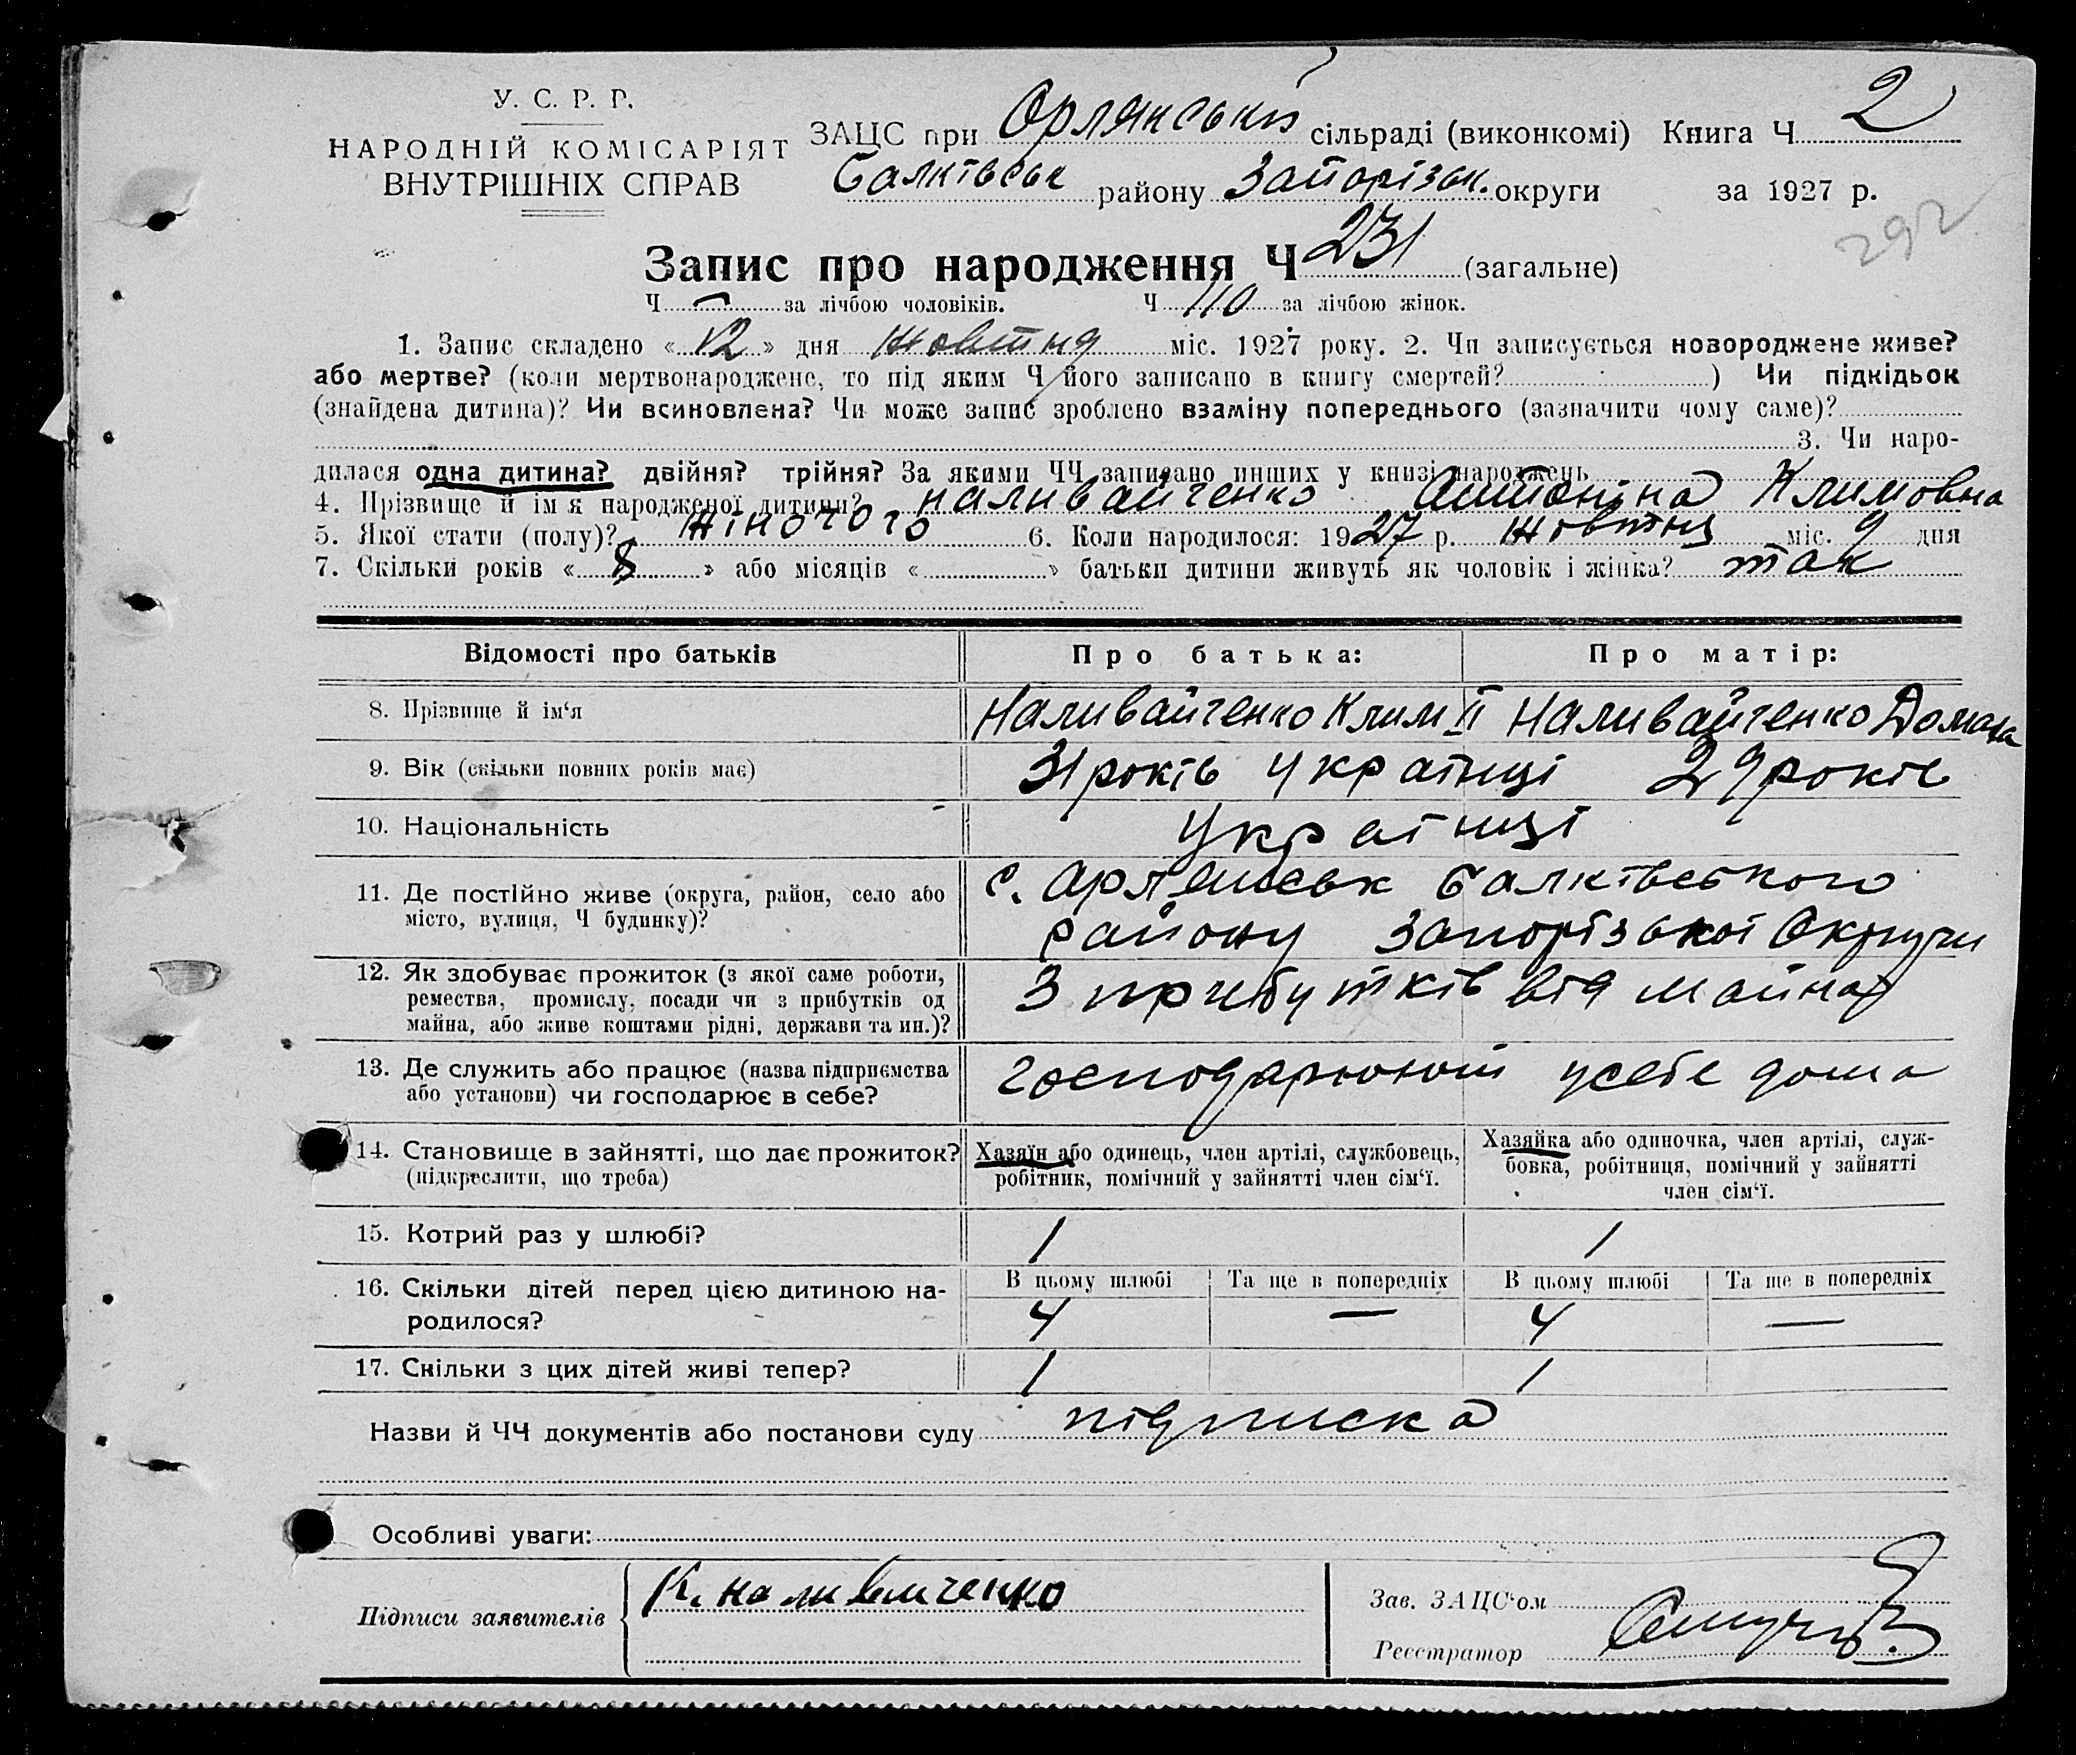 У. С. Р. Р.
НАРОДНІЙ КОМІСАРІЯТ
ВНУТРІШНІХ СПРАВ
ЗАЦС при Орлянській сільраді (виконкомі) Книга Ч 2
Балківськ району Запорізьк. округи за 1927 р.
292
Запис про народження Ч 231 (загальне)
Ч — за лічбою чоловіків. Ч 110 за лічбою жінок.
1. Запис складено « 12 » дня жовтня міс. 1927 року. 2. Чи записується новороджене живе?
або мертве? (коли мертвонароджене, то під яким Ч його записано в книгу смертей? ) Чи підкідьок
(знайдена дитина)? Чи всиновлена? Чи може запис зроблено взаміну попереднього (зазначити чому саме)?
3. Чи наро-
дилася одна дитина? двійня? трійня? За якими ЧЧ записано инших у книзі народжень
4. Прізвище й ім'я народженої дитини? Наливайченко Антоніна Климовна
5. Якої стати (полу)? жіночого 6. Коли народилося: 1927 р. жовтня міс. 9 дня
7. Скільки років « 8 » або місяців « » батьки дитини живуть як чоловік і жінка? так
Відомості про батьків Про батька: Про матір:
8. Прізвище й ім'я Наливайченко Клим II Наливайченко Домаха
9. Вік (скільки повних років має) 31 років українці 29 років
10. Національність Українці
11. Де постійно живе (округа, район, село або
місто, вулиця, Ч будинку)?
с. Орлянськ Балківського
району Запорізької Округи
12. Як здобуває прожиток (з якої саме роботи,
ремества, промислу, посади чи з прибутків од
майна, або живе коштами рідні, держави та ин.)?
З прибутків від майна
13. Де служить або працює (назва підприємства
або установи) чи господарює в себе?
господарюють у себе дома
14. Становище в зайнятті, що дає прожиток?
(підкреслити, що треба)
Хазяїн або одинець, член артілі, службовець,
робітник, помічний у зайнятті член сім'ї.
Хазяйка або одиночка, член артілі, служ-
бовка, робітниця, помічний у зайнятті
член сім'ї.
15. Котрий раз у шлюбі? 1 1
16. Скільки дітей перед цією дитиною на-
родилося?
В цьому шлюбі Та ще в попередніх В цьому шлюбі Та ще в попередніх
4 — 4 —
17. Скільки з цих дітей живі тепер? 1 1
Назви й ЧЧ документів або постанови суду підписка
Особливі уваги:
Підписи заявителів К. Наливайченко
Зав. ЗАЦС'ом
Реєстратор